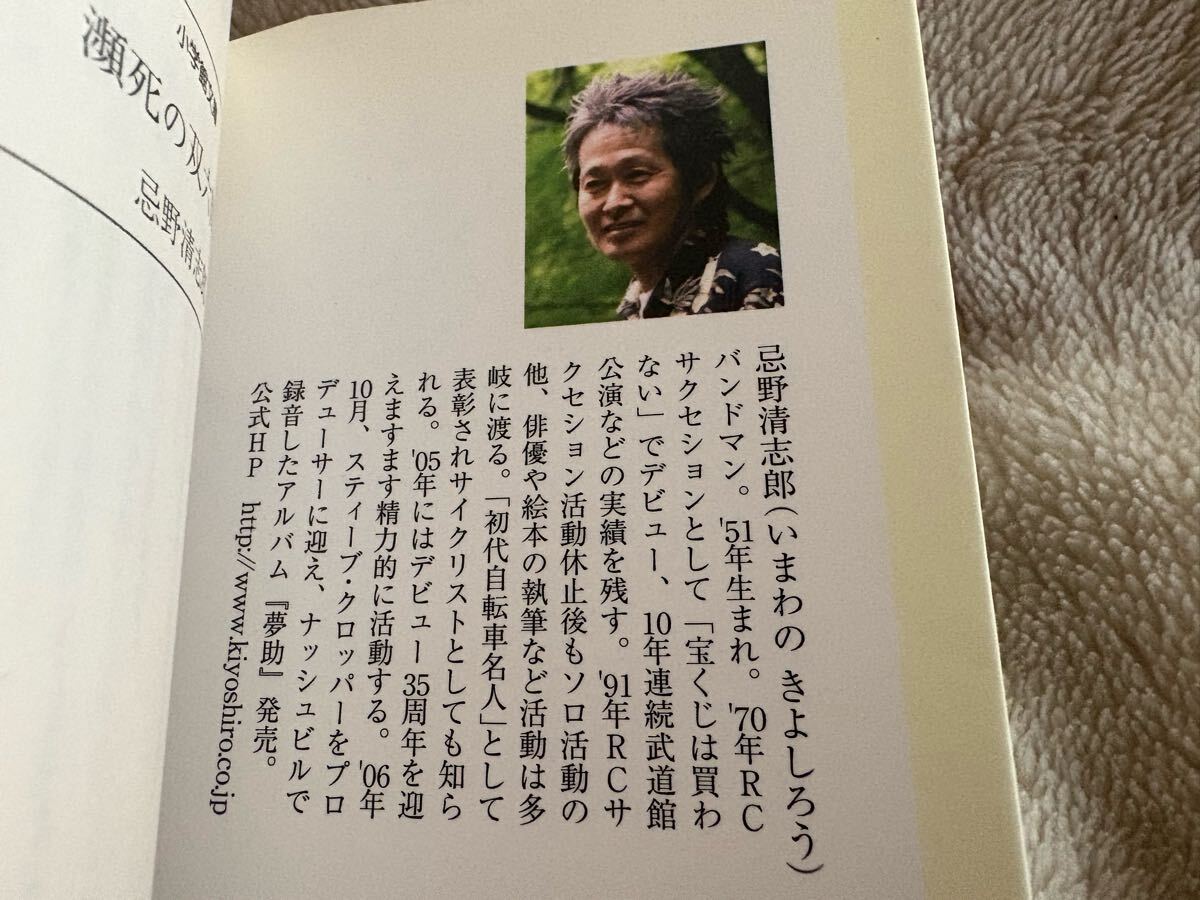 忌野清志郎(いまわの きよしろう)
バンドマン。'51年生まれ。'70年RC
サクセションとして「宝くじは買わ
ない」でデビュー、10年連続武道館
公演などの実績を残す。'91年RCサ
クセション活動休止後もソロ活動の
他、俳優や絵本の執筆など活動は多
岐に渡る。「初代自転車名人」として
表彰されサイクリストとしても知ら
れる。'05年にはデビュー35周年を迎
えますます精力的に活動する。'06年
10月、スティーブ・クロッパーをプロ
デューサーに迎え、ナッシュビルで
録音したアルバム『夢助』発売。
公式HP http://www.kiyoshiro.co.jp
小学館文庫
瀕死の双六
忌野清志